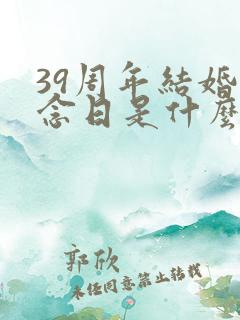 39周年結婚
念日是什麼
郭欣
未经同意禁止转载